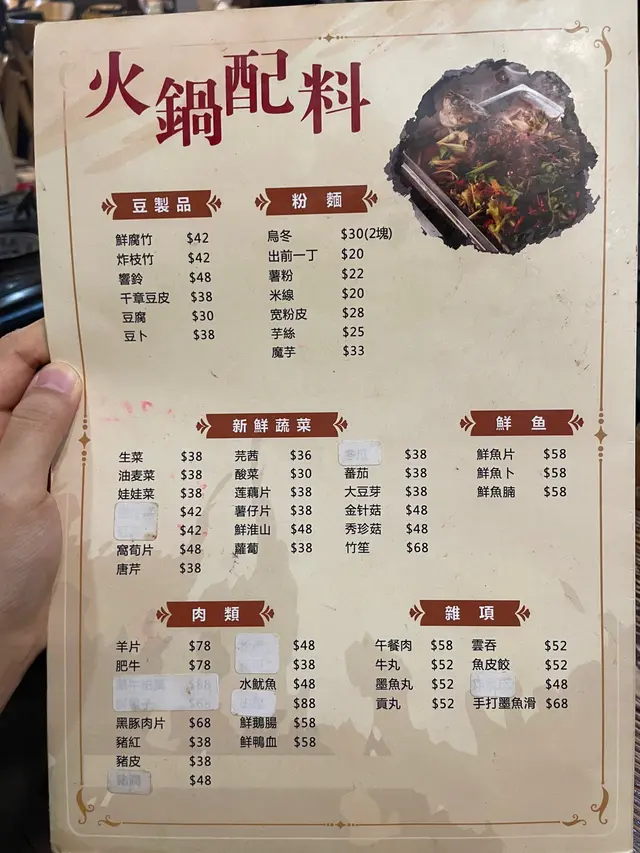 火鍋配料
豆製品
鮮腐竹 $42
炸枝竹 $42
響鈴 $48
千章豆皮 $38
豆腐 $30
豆卜 $38
粉麵
烏冬 $30(2塊)
出前一丁 $20
薯粉 $22
米線 $20
宽粉皮 $28
芋絲 $25
魔芋 $33
新鮮蔬菜
生菜 $38
油麦菜 $38
娃娃菜 $38
$42
$42
窩荀片 $48
唐芹 $38
芫茜 $36
酸菜 $30
莲藕片 $38
薯仔片 $38
鮮淮山 $48
蘿蔔 $38
$38
蕃茄 $38
大豆芽 $38
金针菇 $48
秀珍菇 $48
竹笙 $68
鮮鱼
鮮魚片 $58
鮮魚卜 $58
鮮魚腩 $58
肉類
羊片 $78
肥牛 $78
$88
$68
黑豚肉片 $68
豬紅 $38
豬皮 $38
$48
$48
$38
水魷魚 $48
$88
鮮鵝腸 $58
鮮鴨血 $58
雜項
午餐肉 $58
牛丸 $52
墨魚丸 $52
貢丸 $52
雲吞 $52
魚皮餃 $52
$48
手打墨魚滑 $68